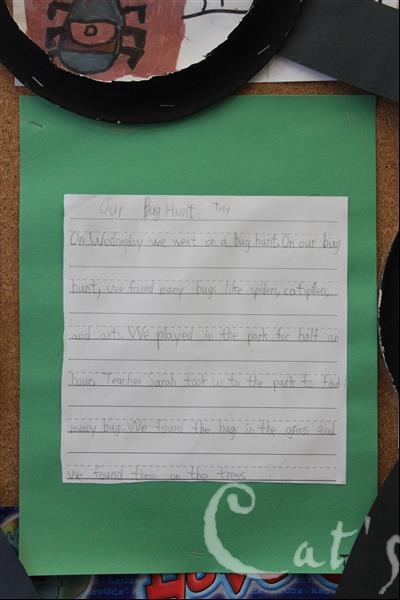 Our Bug Hunt Toby
On Wednesday we went on a bug hunt. On our bug
hunt, we found many bugs like spiders, catipillers,
and ants. We played in the park for half an
hour. Teacher Sarah took us to the park to find
many bug. We found the bugs in the grass and
we found them on the trees
Cat's